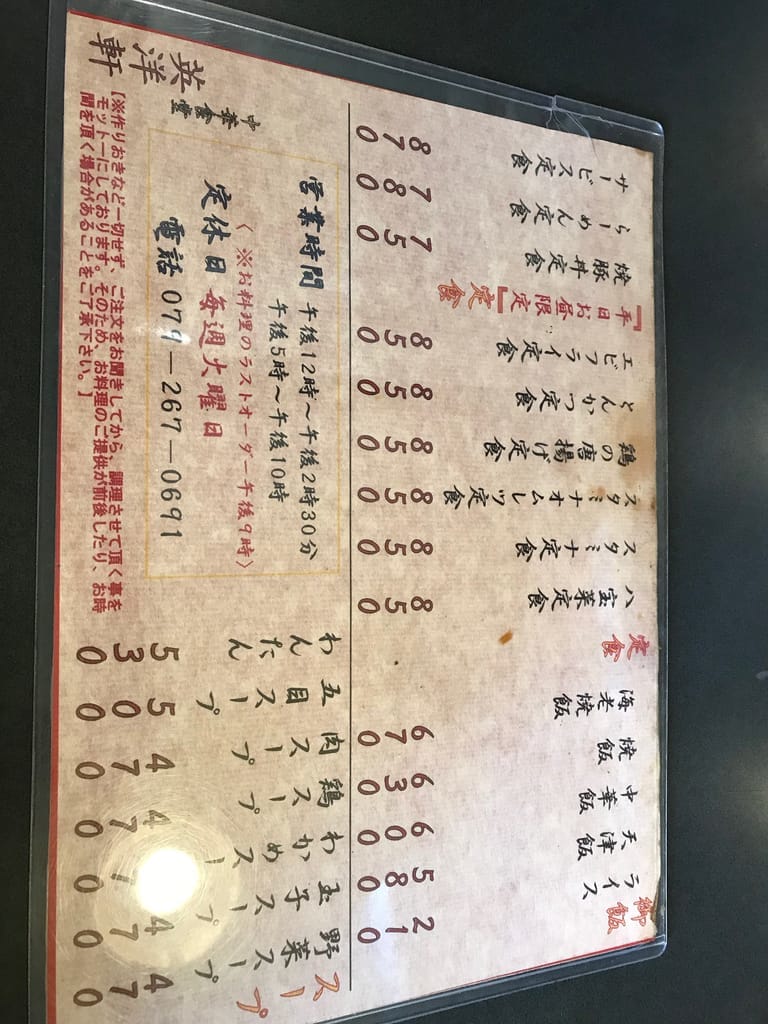 御飯
ライス 210
天津飯 580
中華飯 600
焼飯 630
海老焼飯 670
定食
八宝菜定食 850
スタミナ定食 850
スタミナオムレツ定食 850
鶏の唐揚げ定食 850
とんかつ定食 850
エビフライ定食 850
『平日お昼限定』定食
焼豚丼定食 750
らーめん定食 780
サービス定食 870
スープ
野菜スープ 470
玉子スープ 470
わかめスープ
鶏スープ 470
肉スープ 470
五目スープ 500
わんたん 530
営業時間 午後12時〜午後2時30分
午後5時〜午後10時
(※お料理のラストオーダー午後9時)
定休日 毎週火曜日
電話 079-267-0691
中華食堂
英洋軒
【※作りおきなど一切せず、ご注文をお聞きしてから、調理させて頂く事を
モットーにしております。そのため、お料理のご提供が前後したり、お時
間を頂く場合があることをご了承下さい。】